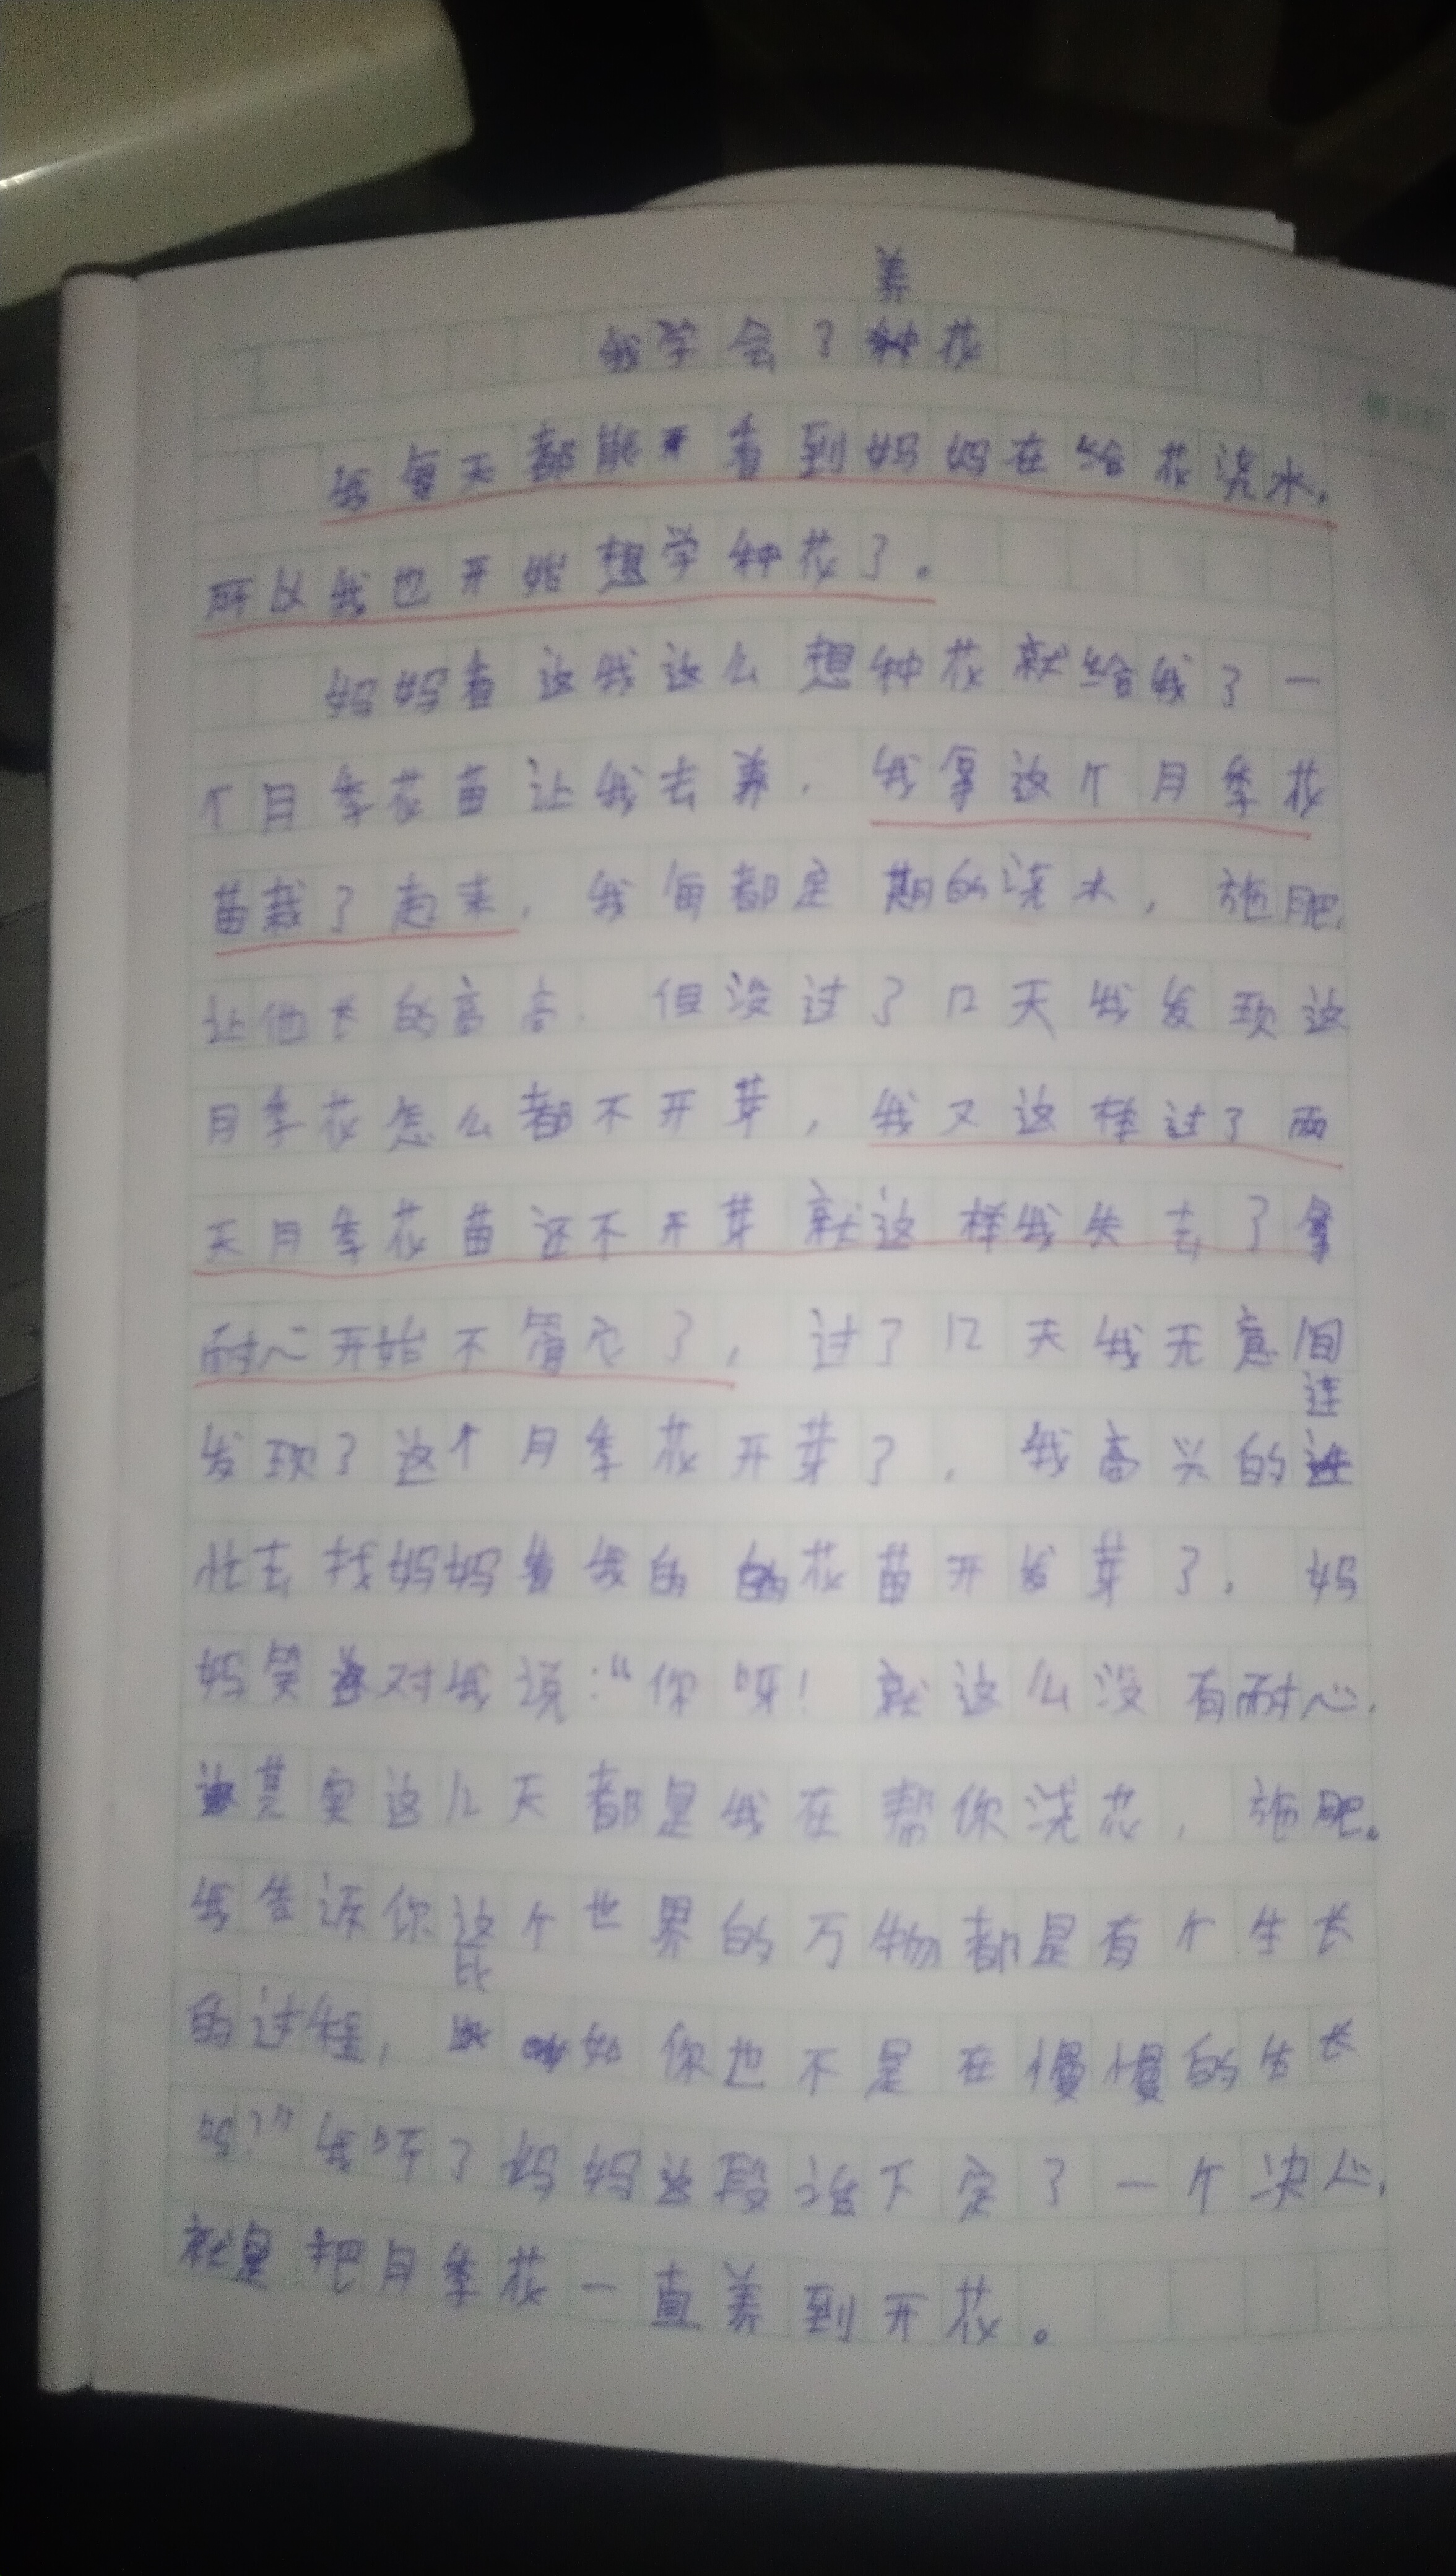 养
我学会了花
我每天都能看到妈妈在给花浇水,
所以我也开始想学种花了。
妈妈看这我这么想种花就给我了一
个月季花苗让我去养.我拿这个月季花
苗栽了起来,我每都定期的浇水,施肥,
让他长的高高.但没过了几天我发现这
月季花怎么都不开芽,我又这样过了两
天月季花苗还不开芽就这样我失去了
耐心开始不管它了,过了几天我无意间
连
发现了这个月季花开芽了.我高兴的
忙去找妈妈我的花苗开发芽了.妈
妈笑着对我说:“你呀!就这么没有耐心,
其实这几天都是我在帮你浇花,施肥。
我告诉你这个世界的万物都是有个生长
比
的过程,如你也不是在慢慢的生长
吗?”我听了妈妈这段话下定了一个决心,
就是把月季花一直养到开花。